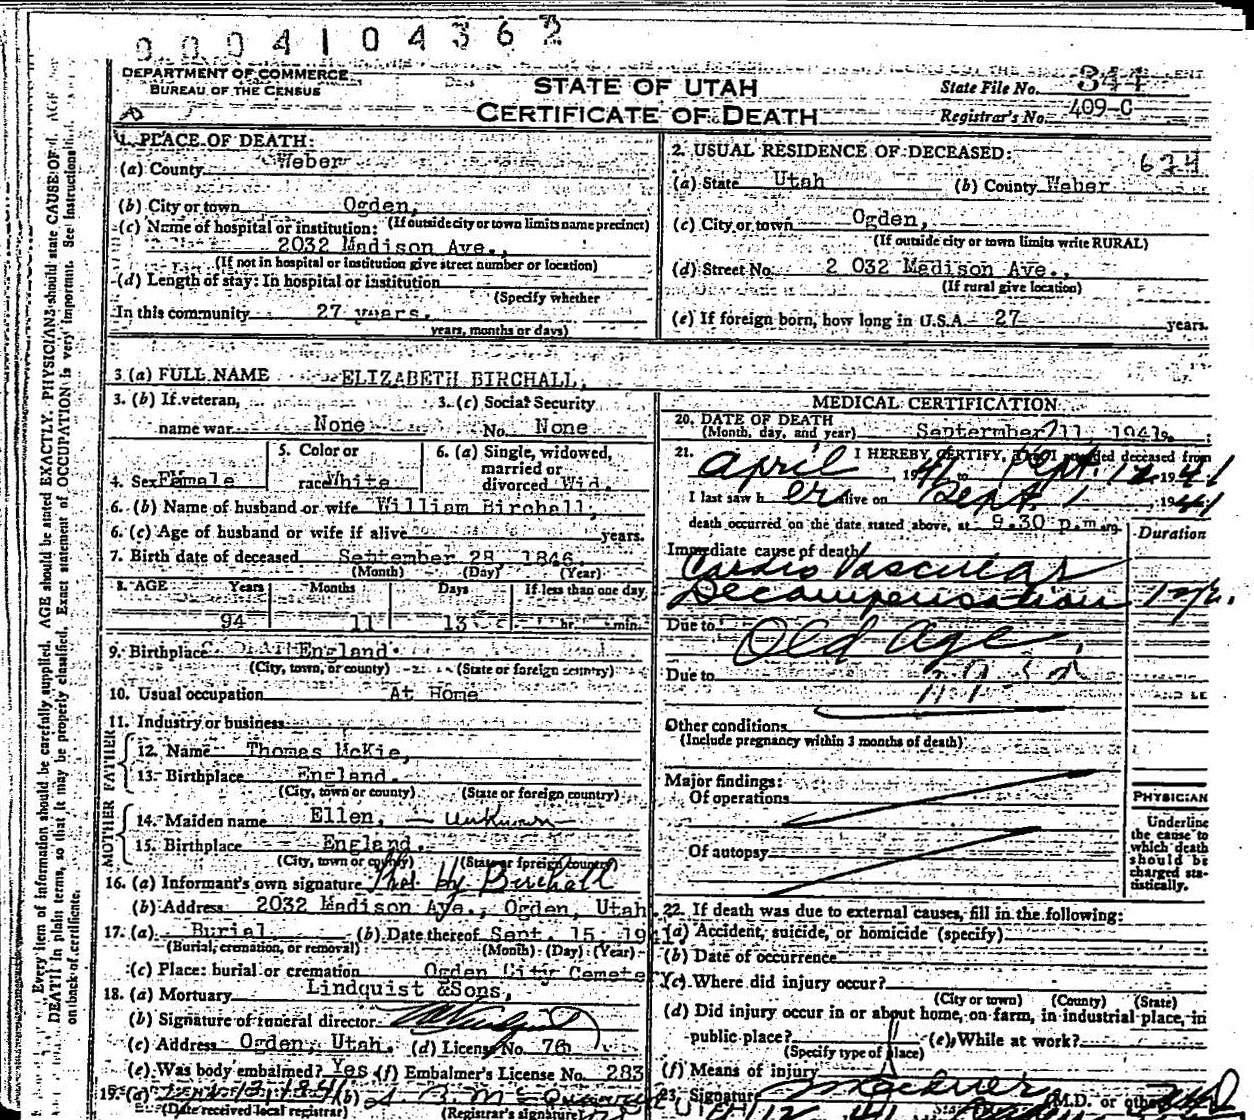 0004104362
DEPARTMENT OF COMMERCE
BUREAU OF THE CENSUS
STATE OF UTAH
CERTIFICATE OF DEATH
State File No. 344
Registrar's No. 409-C
1. PLACE OF DEATH:
(a) County Weber
(b) City or town Ogden,
(If outside city or town limits name precinct)
(c) Name of hospital or institution:
2032 Madison Ave.,
(If not in hospital or institution give street number or location)
(d) Length of stay: In hospital or institution
(Specify whether
In this community 27 years.
years, months or days)
2. USUAL RESIDENCE OF DECEASED:
(a) State Utah (b) County Weber
(c) City or town Ogden,
(If outside city or town limits write RURAL)
(d) Street No. 2 032 Madison Ave.,
(If rural give location)
(e) If foreign born, how long in U.S.A. 27 years.
3 (a) FULL NAME ELIZABETH BIRCHALL,
3. (b) If veteran,
name war None
3. (c) Social Security
No. None
4. Sex Female
5. Color or
race White
6. (a) Single, widowed,
married or
divorced Wid.
6. (b) Name of husband or wife William Birchall,
6. (c) Age of husband or wife if alive years.
7. Birth date of deceased September 28, 1846.
(Month) (Day) (Year)
8. AGE Years Months Days If less than one day
94 11 13 hr. min.
9. Birthplace England.
(City, town, or county) (State or foreign country)
10. Usual occupation At Home
11. Industry or business
FATHER
12. Name Thomas McKie,
13. Birthplace England.
(City, town, or county) (State or foreign country)
MOTHER
14. Maiden name Ellen, - unknown -
15. Birthplace England.
(City, town or county) (State or foreign country)
16. (a) Informant's own signature Birchall
(b) Address 2032 Madison Ave., Ogden, Utah.
17. (a) Burial (b) Date thereof Sept. 15, 1941
(Burial, cremation, or removal) (Month) (Day) (Year)
(c) Place: burial or cremation Ogden City Cemetery
18. (a) Mortuary Lindquist &Sons,
(b) Signature of funeral director
(c) Address Ogden, Utah. (d) License No. 76
(e) Was body embalmed? Yes (f) Embalmer's License No. 283
19. (a) (b)
(Date received local registrar) (Registrar's signature)
MEDICAL CERTIFICATION
20. DATE OF DEATH
(Month, day, and year) September 11, 1941
21. I HEREBY CERTIFY, That I attended deceased from
April 1941 to Sept. 1941
I last saw her alive on Sept. 1 1941
death occurred on the date stated above, at 9.30 p.m.
Duration
Immediate cause of death
Cardio Vascular
Decompensation
Due to Old age
Due to
Other conditions
(Include pregnancy within 3 months of death)
Major findings:
Of operations
Of autopsy
PHYSICIAN
Underline
the cause to
which death
should be
charged sta-
tistically.
22. If death was due to external causes, fill in the following:
(a) Accident, suicide, or homicide (specify)
(b) Date of occurrence
(c) Where did injury occur?
(City or town) (County) (State)
(d) Did injury occur in or about home, on farm, in industrial place, in
public place? (e) While at work?
(Specify type of place)
(f) Means of injury
23. Signature (M.D. or other)
Every item of information should be carefully supplied. AGE should be stated EXACTLY. PHYSICIANS should state CAUSE OF
DEATH in plain terms, so that it may be properly classified. Exact statement of OCCUPATION is very important. See Instructions
on back of certificate.